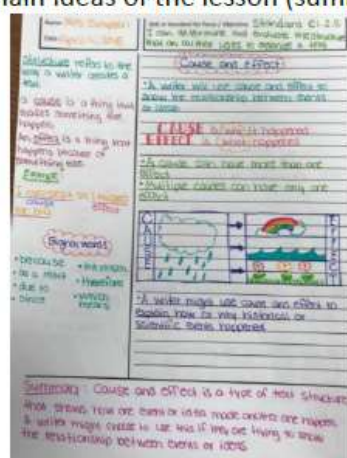 ain ideas of the lesson (sum
Standard E1.2.5
I can determine and evaluate the structure
Structure refers to the
way a writer creates a
text.
a cause is a thing that
makes something else
happen.
An effect is a thing that
happens because of
something else.
Example
cause
effect
Signal words
• because
• as a result
• due to
• since
• therefore
• which
means
Cause and effect
• A writer will use cause and effect to
show the relationship between events
or ideas.
CAUSE is why it happened
EFFECT is what happened
• A cause can have more than one
effect
• Multiple causes can have only one
effect
CAUSE
EFFECT
• A writer might use cause and effect to
explain how or why historical or
scientific events happened
Summary: Cause and effect is a type of text structure
that shows how one event or idea made another one happen.
A writer might choose to use this if they are trying to show
the relationship between events or ideas.